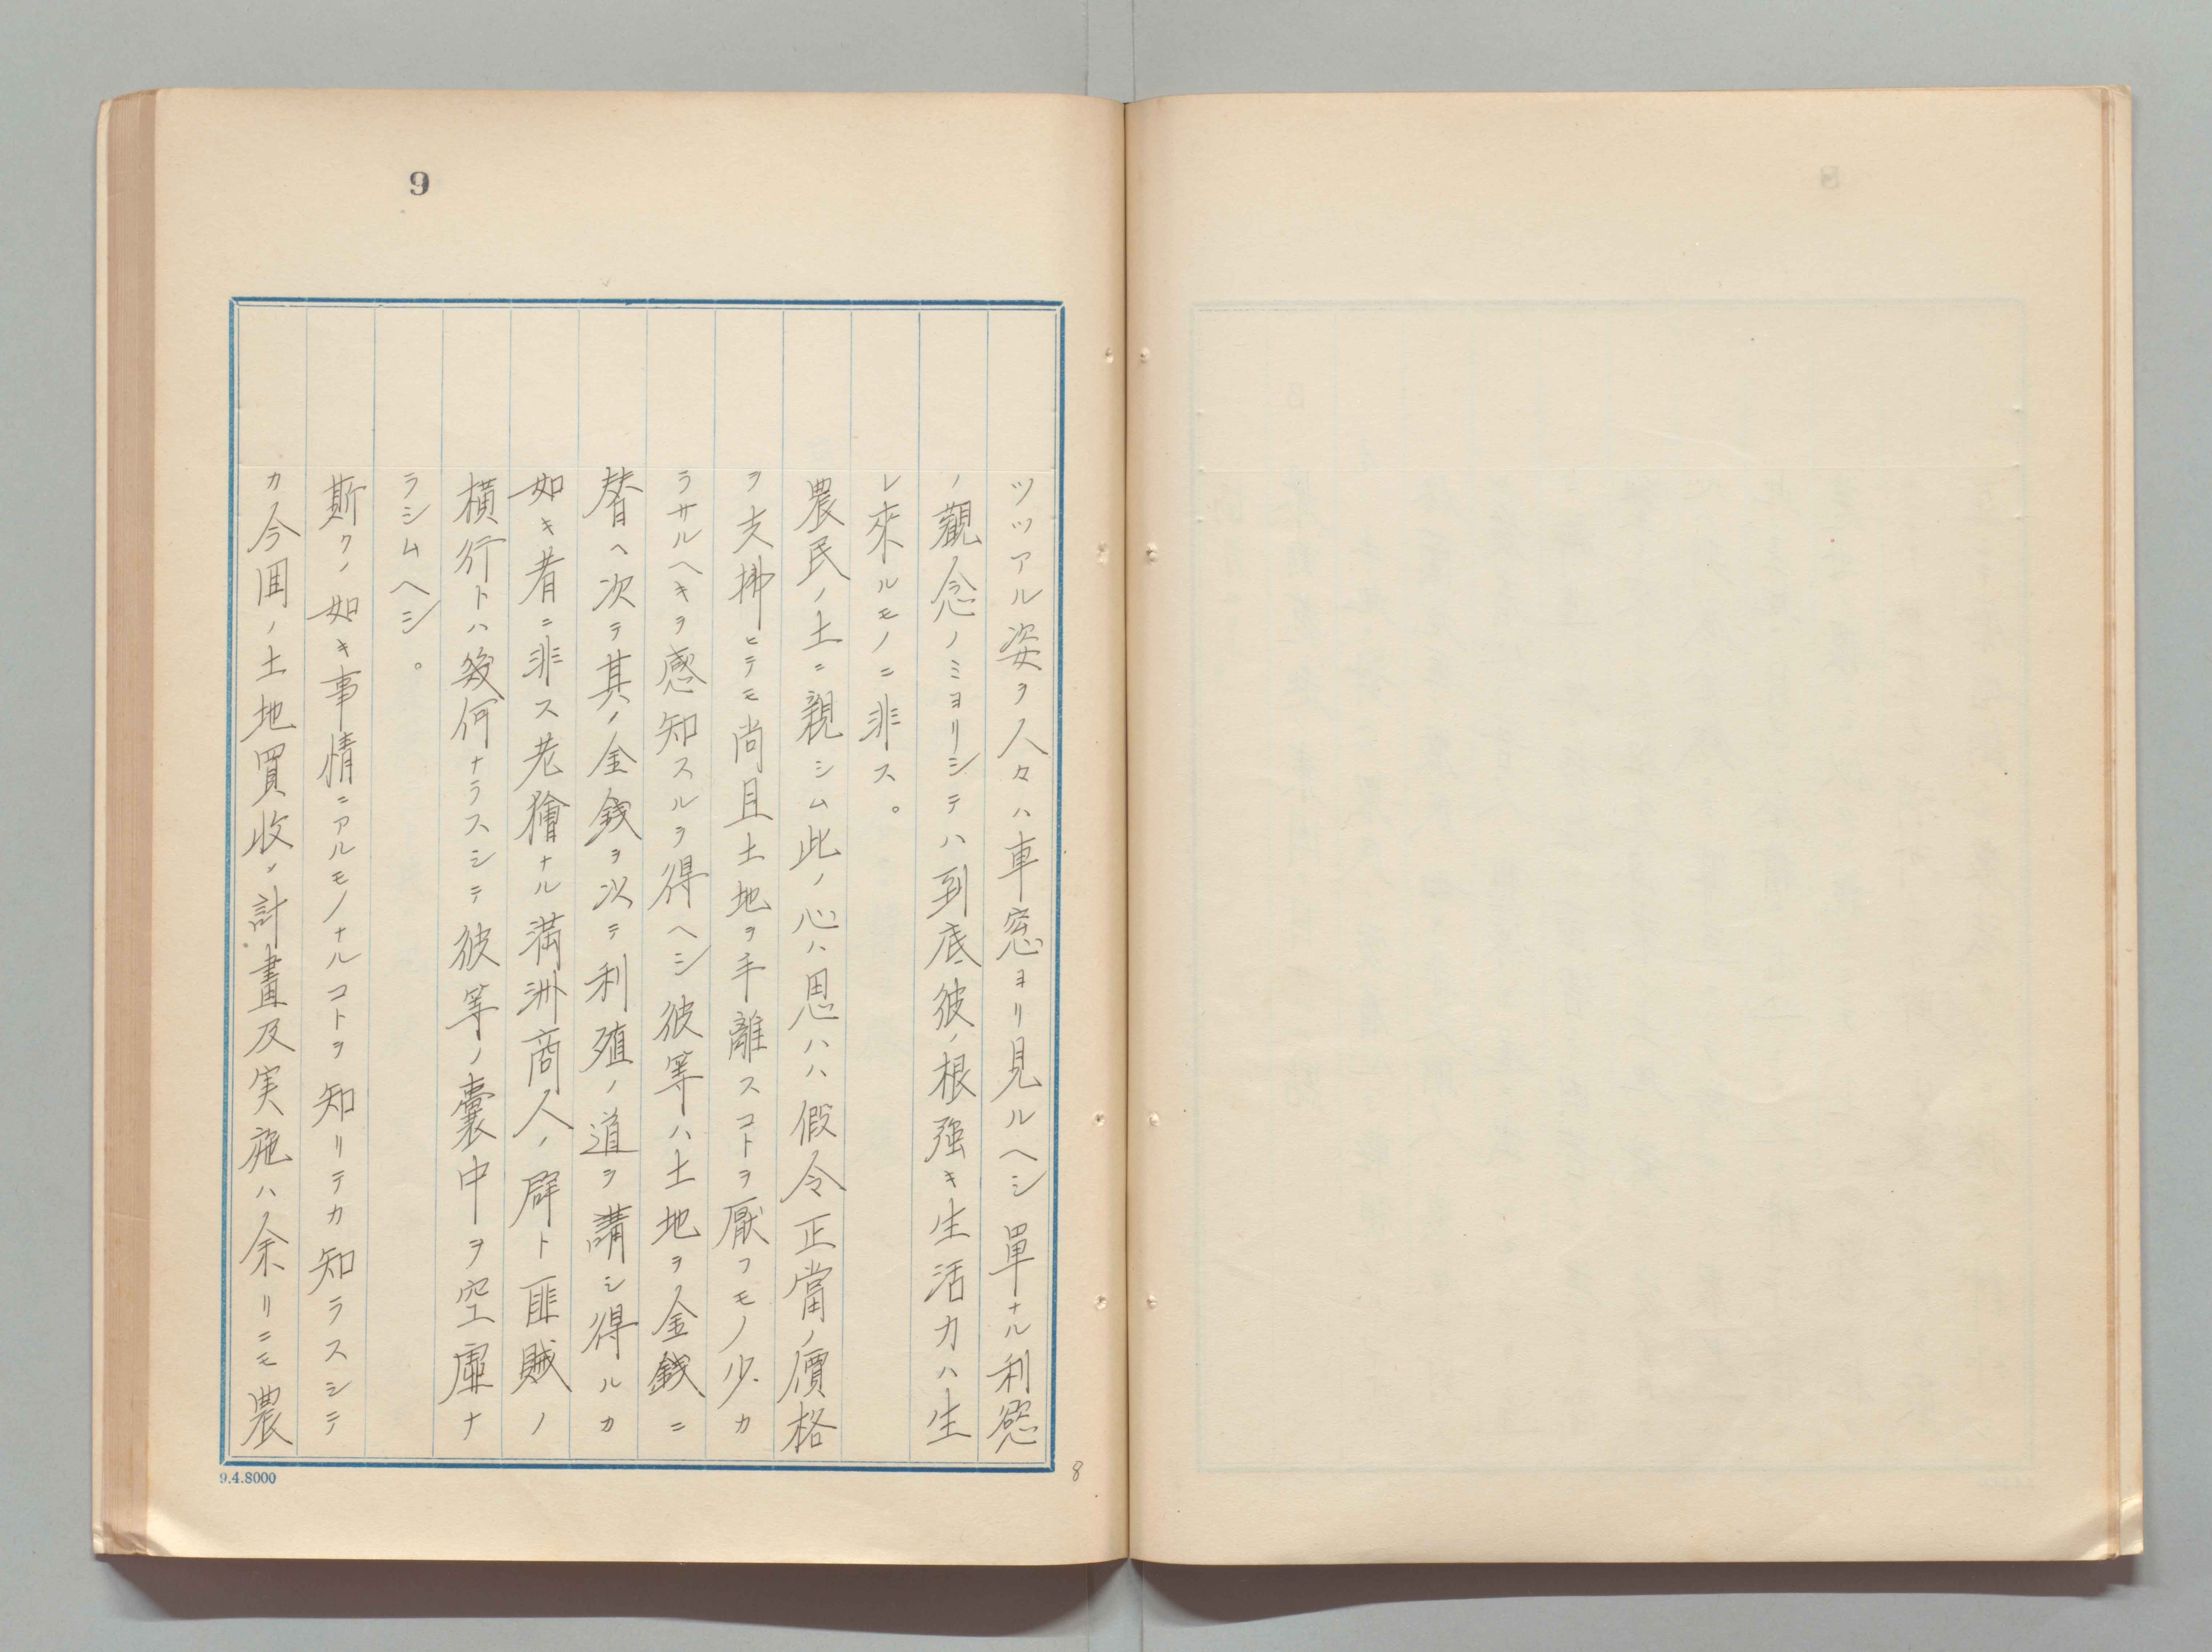 9
ツツアル姿ヲ人々ハ車窓ヨリ見ルヘシ單ナル利慾
ノ觀念ノミヨリシテハ到底彼ノ根強キ生活力ハ生
レ來ルモノニ非ス。
農民ノ土ニ親シム此ノ心ハ思ハハ假令正當ノ價格
ヲ支拂ヒテモ尚且土地ヲ手離スコトヲ厭フモノ少カ
ラサルヘキヲ感知スルヲ得ヘシ彼等ハ土地ヲ金錢ニ
替ヘ次テ其ノ金錢ヲ以テ利殖ノ道ヲ講シ得ルカ
如キ者ニ非ス老獪ナル満洲商人ノ辟ト匪賊ノ
横行トハ幾何ナラスシテ彼等ノ囊中ヲ空虚ナ
ラシムヘシ。
斯クノ如キ事情ニアルモノナルコトヲ知リテカ知ラスシテ
カ今囬ノ土地買收ノ計畫及実施ハ余リニモ農
8
9.4.8000